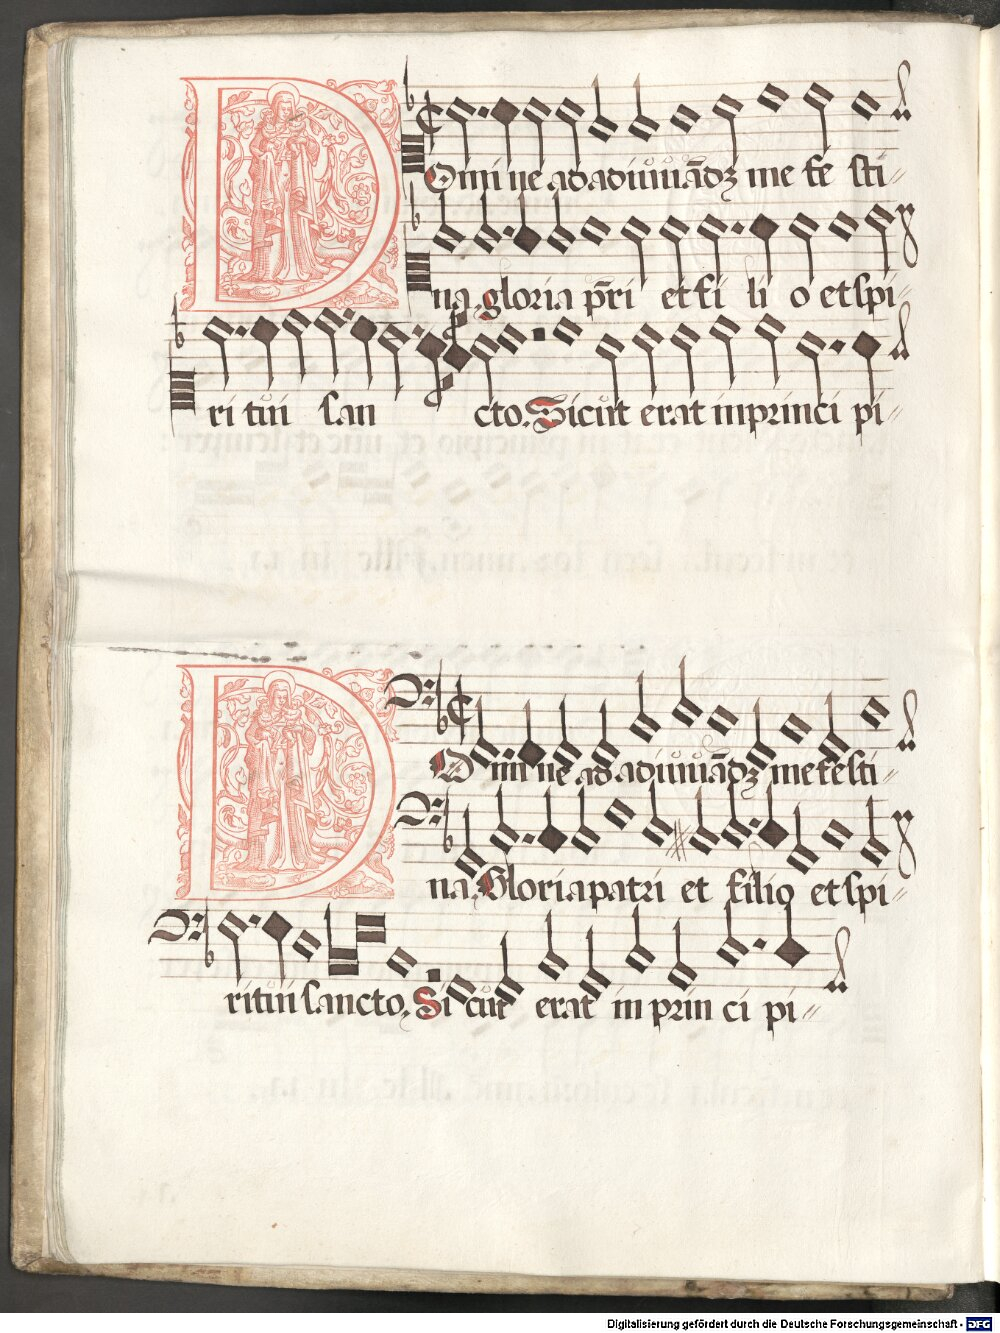 Domine ad adiuuādū me festi
na, gloria pr̄i et fi li o et spi
ri tūi san cto. Sicut erat in princi pi
Domine ad adiuuādū me festi
na, Gloria patri et filio et spi
ritūi sancto. Sicut erat in prin ci pi
Digitalisierung gefördert durch die Deutsche Forschungsgemeinschaft - DFG